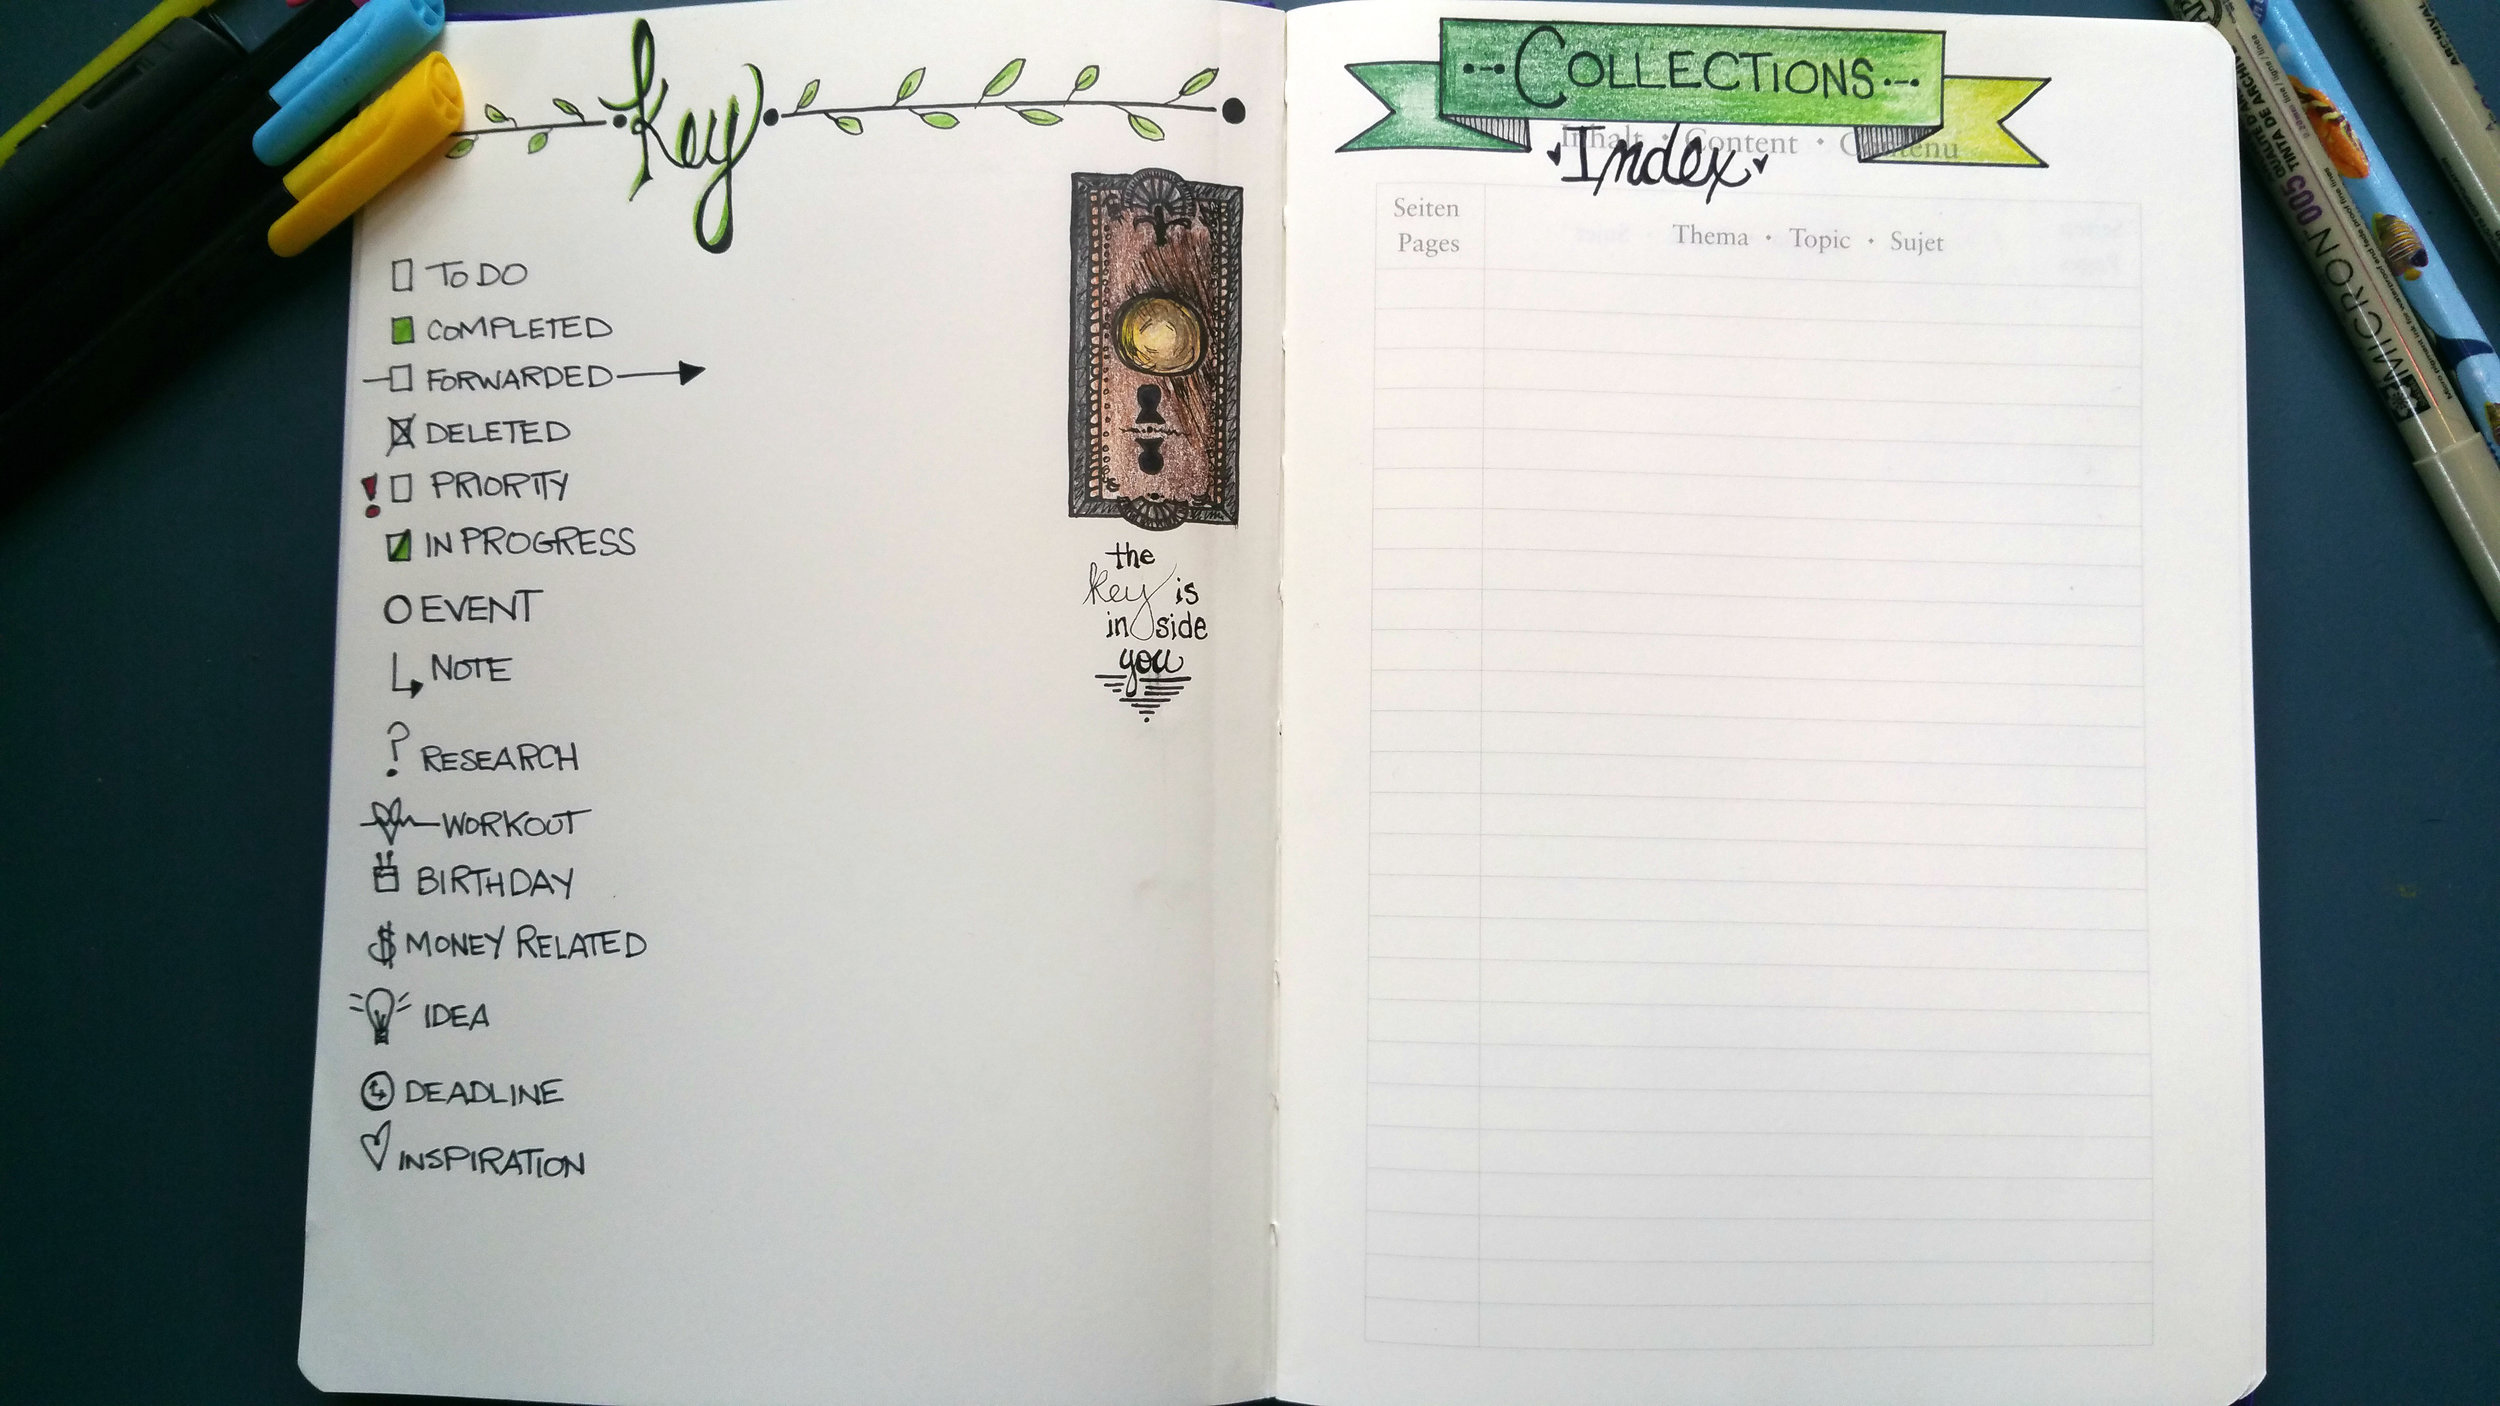 Key
TO DO
COMPLETED
FORWARDED
DELETED
! PRIORITY
IN PROGRESS
EVENT
NOTE
? RESEARCH
WORKOUT
BIRTHDAY
$ MONEY RELATED
IDEA
DEADLINE
INSPIRATION
the
key is
inside
you
COLLECTIONS
Inhalt • Content • Contenu
Index
Seiten
Pages
Thema • Topic • Sujet
MICRON 005
ARCHIVAL